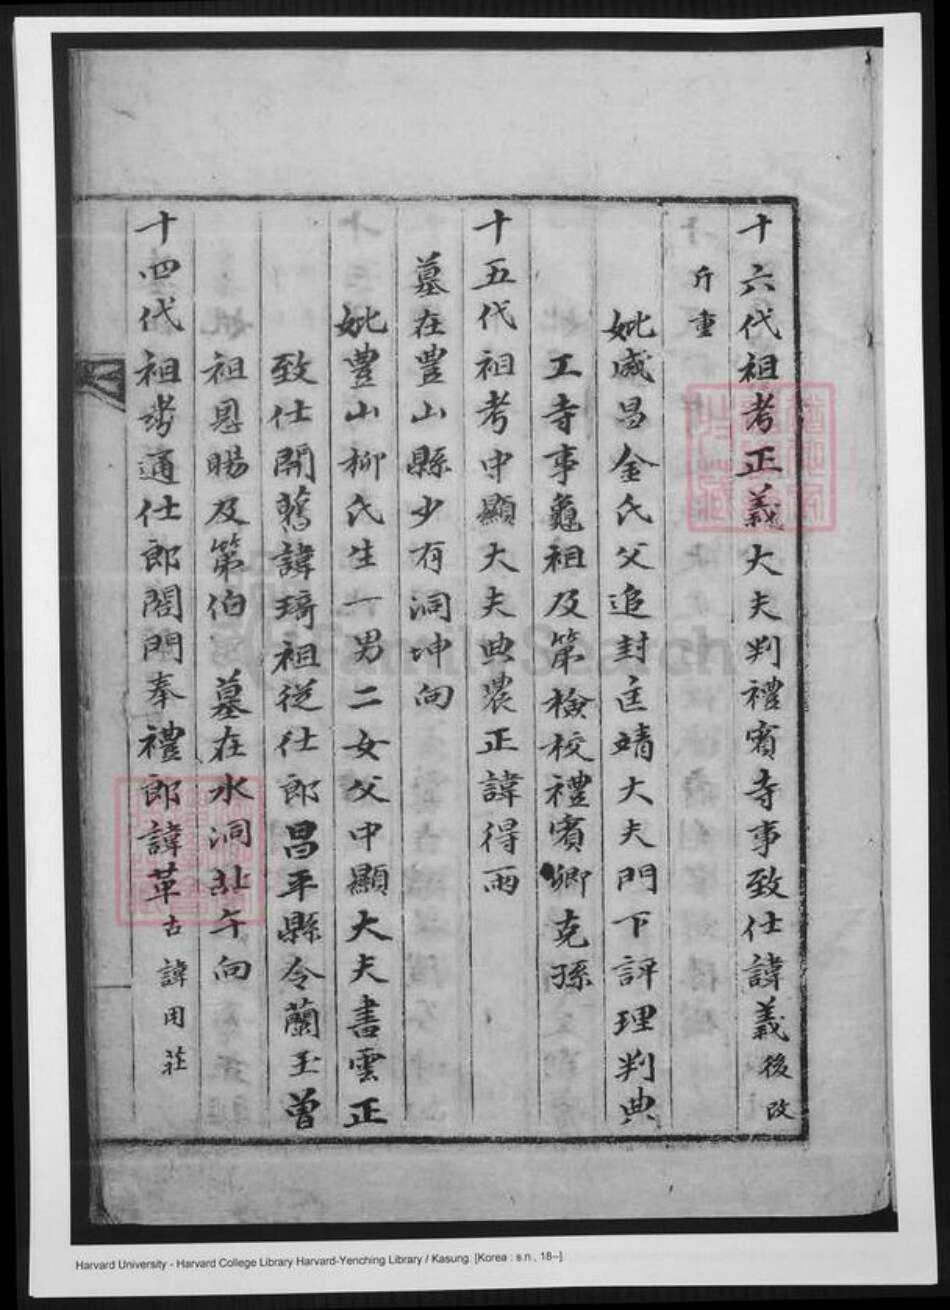 十六代祖考正義大夫判禮賓寺事致仕諱義後改
斤重
妣咸昌金氏父追封匡靖大夫門下評理判典
工寺事龜祖及第檢校禮賓卿克孫
十五代祖考中顯大夫典農正諱得雨
墓在豊山縣少有洞坤向
妣豊山柳氏生一男二女父中顯大夫書雲正
致仕開舊諱琦祖從仕郎昌平縣令蘭玉曾
祖恩賜及第伯 墓在水洞壯午向
十四代祖考通仕郎閣門奉禮郎諱革古諱用莊
Harvard University - Harvard College Library Harvard-Yenching Library / Kasung. [Korea : s.n., 18--].